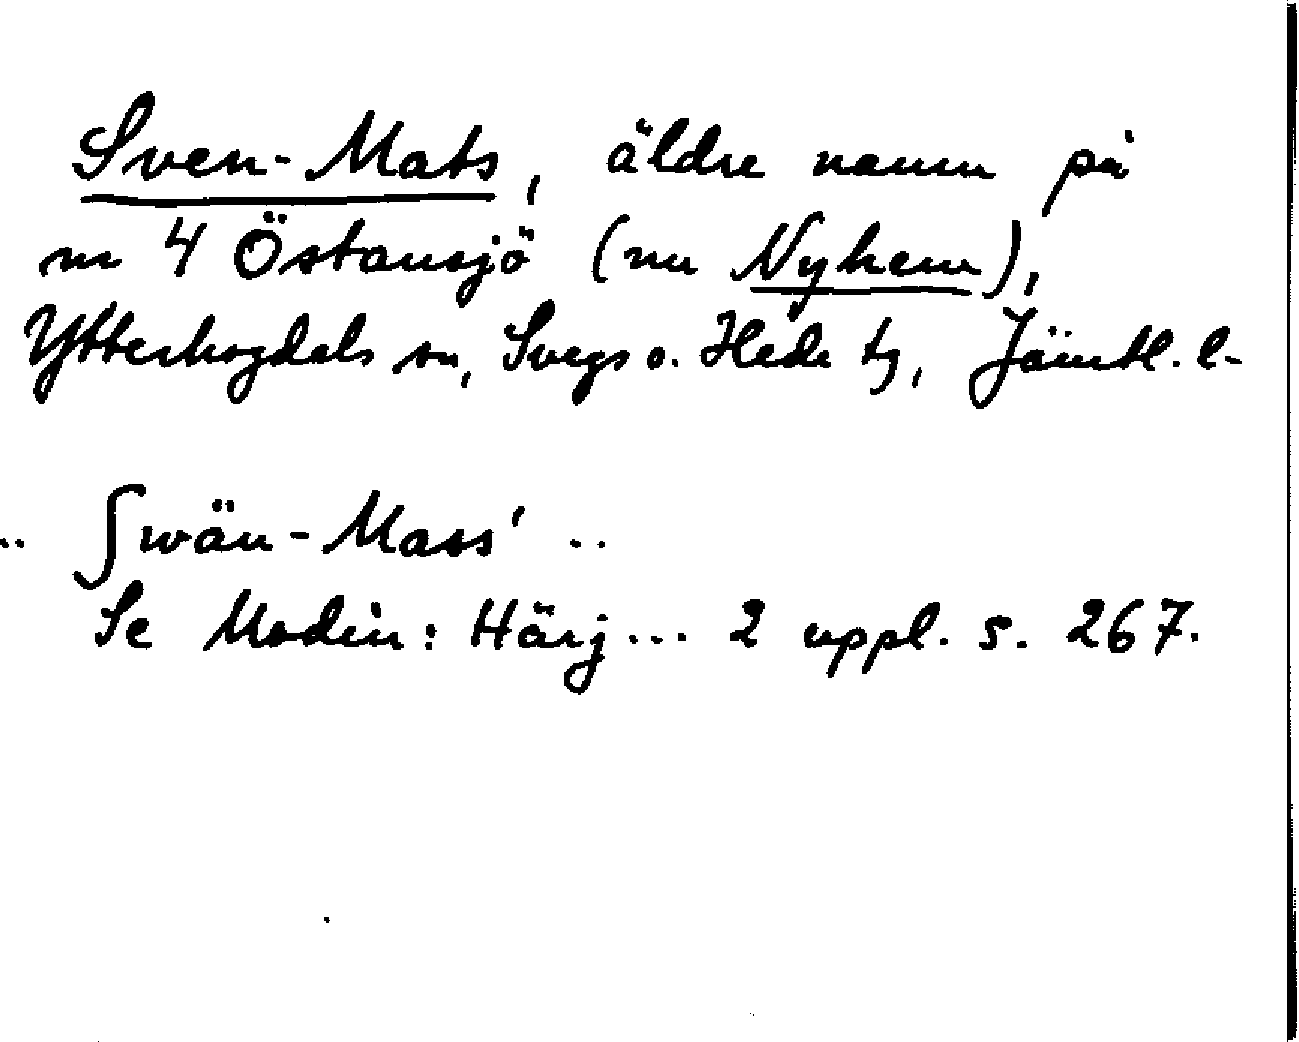 Sven-Mats, äldre namn på
nr 4 Östansjö (nu Nyhem),
Ytterhogdals sn, Svegs o. Hede tg, Jämtl. l.
.. Swän-Mass' ..
Se Modin: Härj... 2 uppl. s. 267.